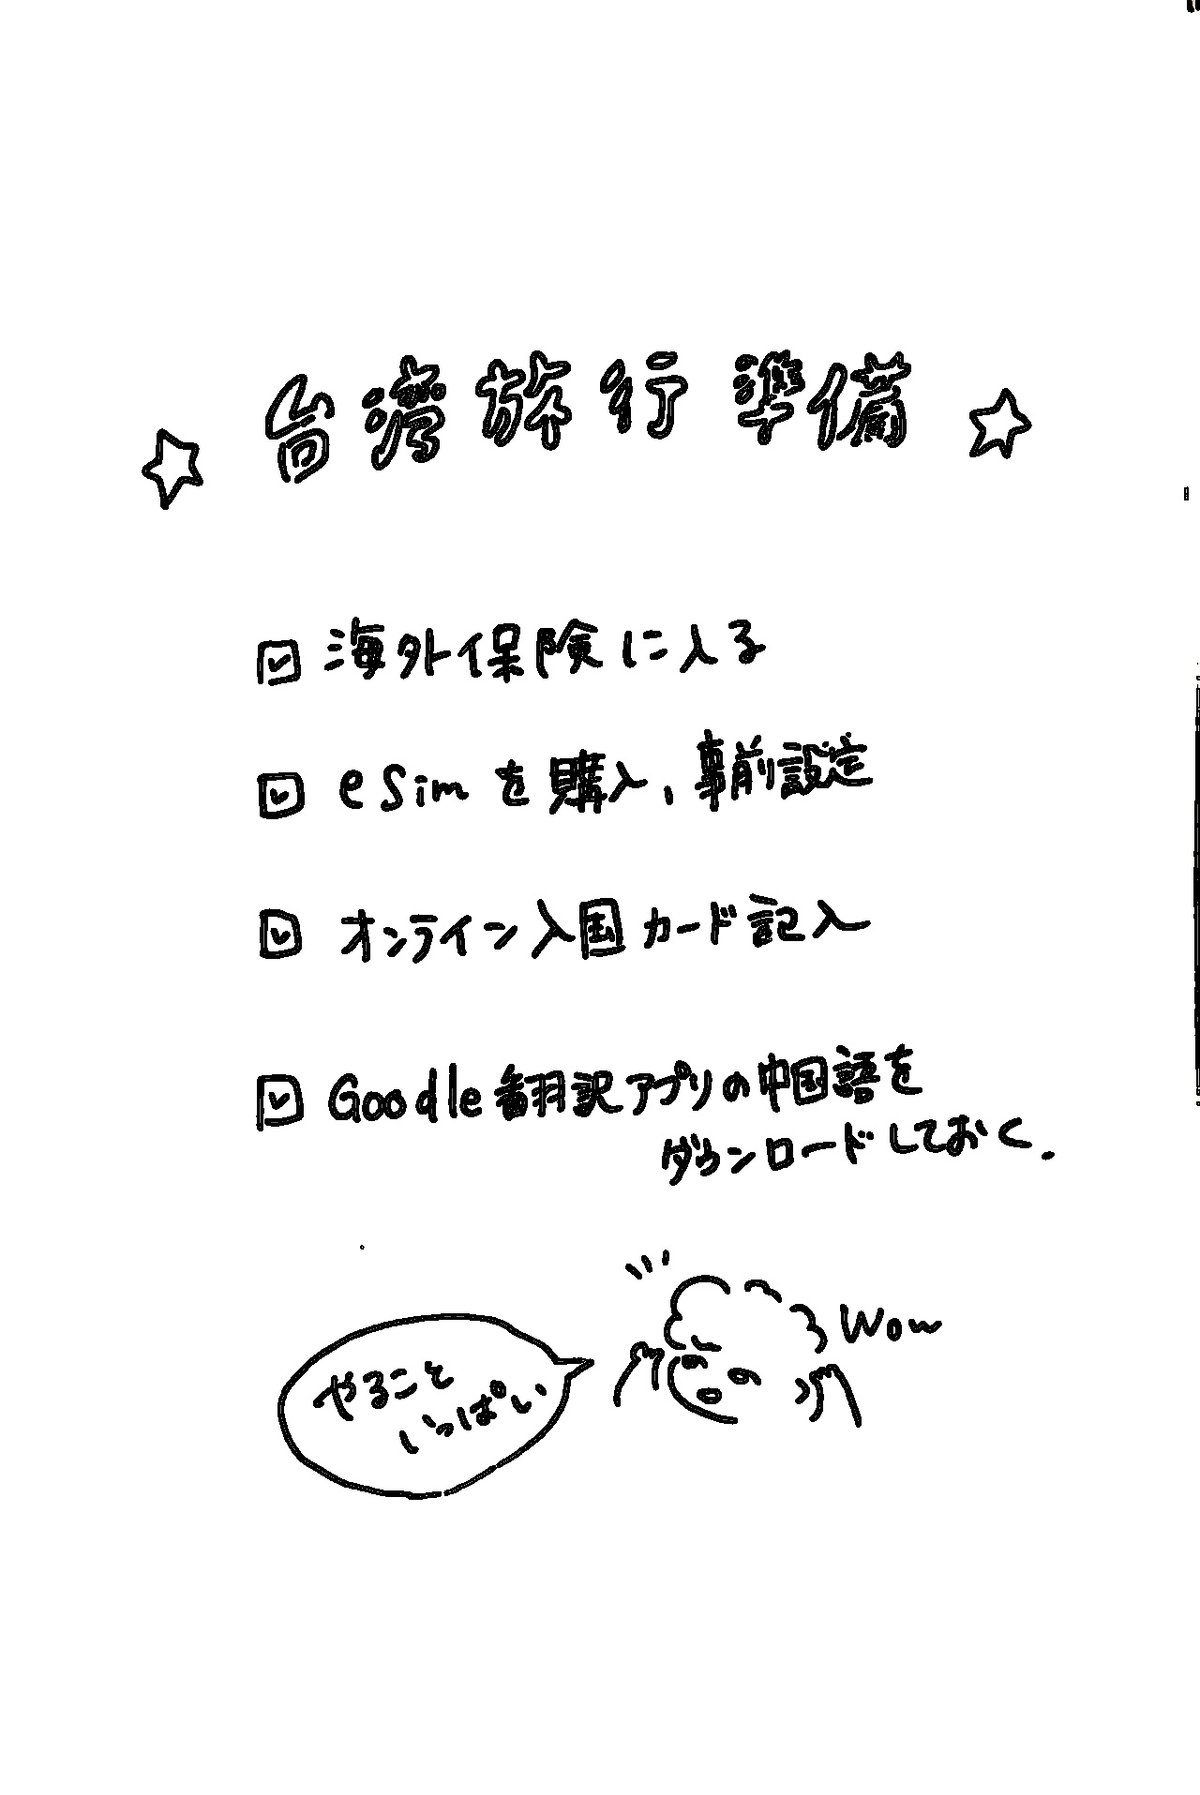 ☆ 台湾旅行準備 ☆
☑ 海外保険に入る
☑ eSimを購入、事前設定
☑ オンライン入国カード記入
☑ Goodle翻訳アプリの中国語を
ダウンロードしておく.
Wow
やること
いっぱい